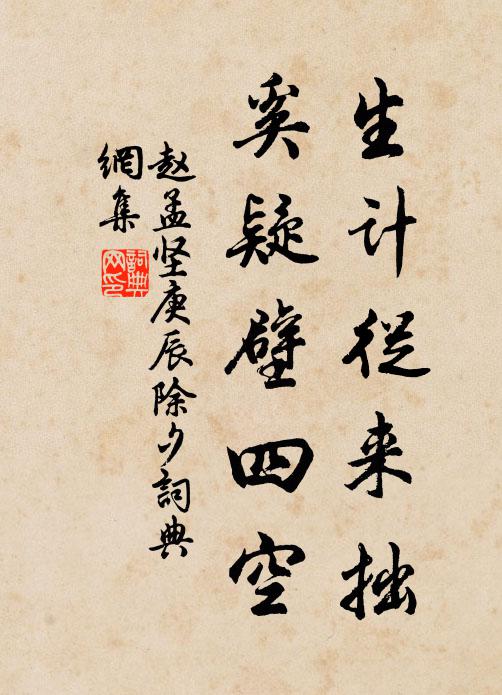 生计從来拙
奚疑壁四空
赵孟坚庚辰除夕詞典
網集
詞典
网印